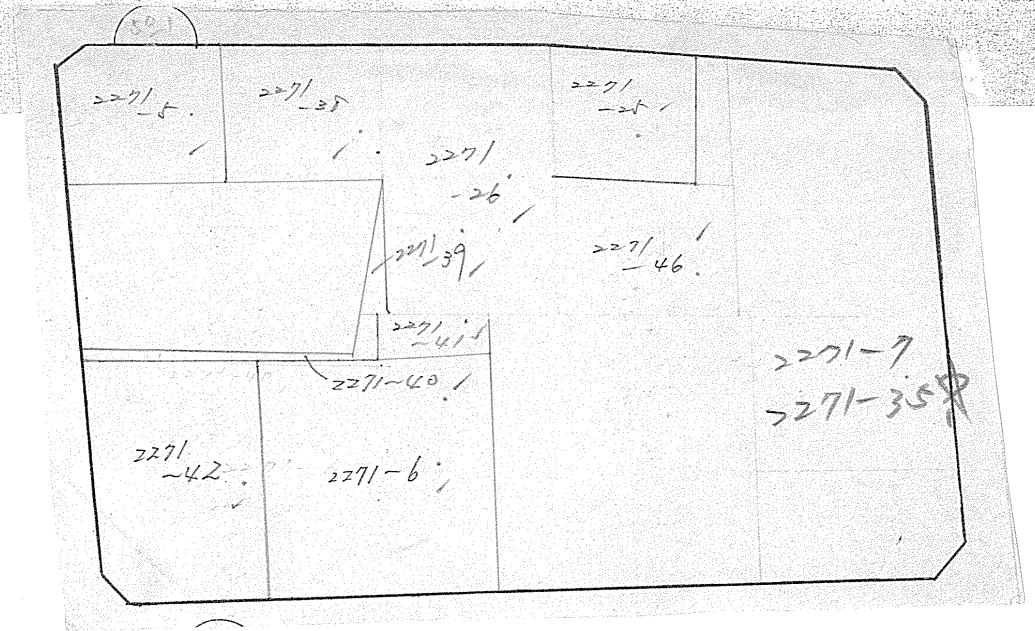 2271
-5
2271
-38
2271
-25
2271
-26
2271
-39
2271
-46
2271
-41
2271-40
2271-7
2271-35
2271
-42
2271-6